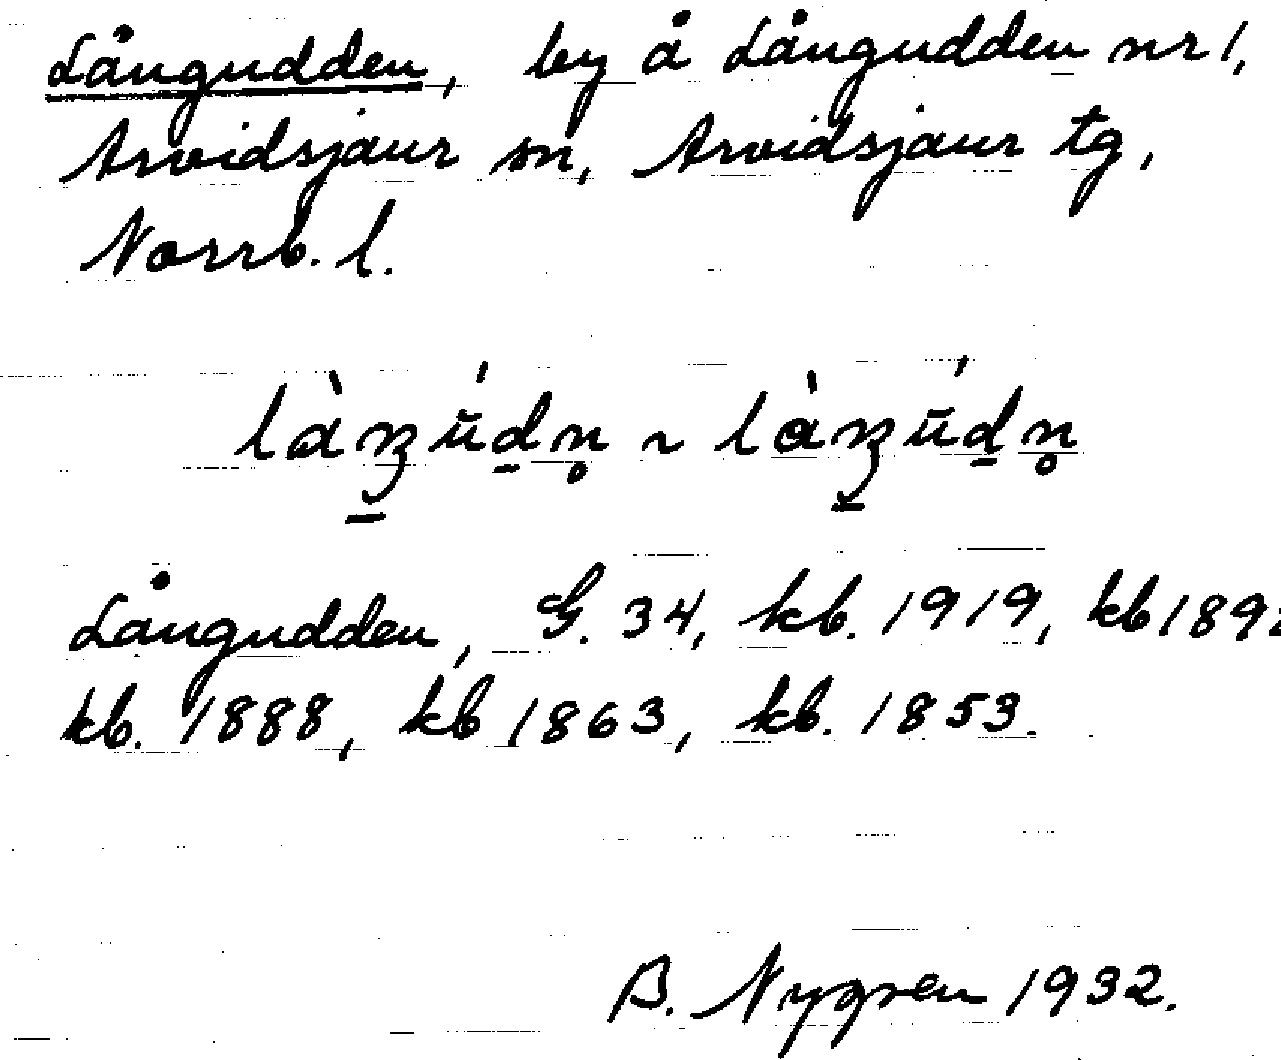 Långudden, by å Långudden nr 1,
Arvidsjaur sn, Arvidsjaur tg,
Norrb. l.
Långudden, G. 34, kb. 1919, kb 189
kb. 1888, kb 1863, kb. 1853.
B. Nygren 1932.